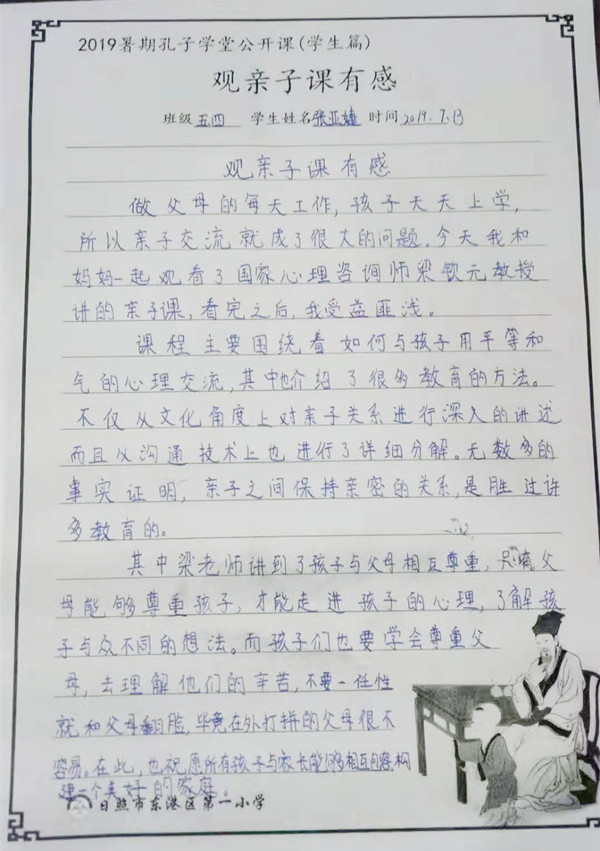 2019暑期孔子学堂公开课(学生篇)
观亲子课有感
班级 五四 学生姓名 张亚婕 时间 2019.7.13
观亲子课有感
做父母的每天工作,孩子天天上学,
所以亲子交流就成了很大的问题。今天我和
妈妈一起观看了国家心理咨询师梁钦元教授
讲的亲子课,看完之后,我受益匪浅。
课程主要围绕着如何与孩子用平等和
气的心理交流,其中也介绍了很多教育的方法。
不仅从文化角度上对亲子关系进行深入的讲述
而且从沟通技术上也进行了详细分解。无数多的
事实证明,亲子之间保持亲密的关系,是胜过许
多教育的。
其中梁老师讲到了孩子与父母相互尊重,只有父
母能够尊重孩子,才能走进孩子的心理,了解孩
子与众不同的想法。而孩子们也要学会尊重父
母,去理解他们的辛苦,不要一任性
就和父母翻脸,毕竟在外打拼的父母很不
容易,在此,也祝愿所有孩子与家长能够相互包容,构
建一个美好的家庭。
日照市东港区第一小学